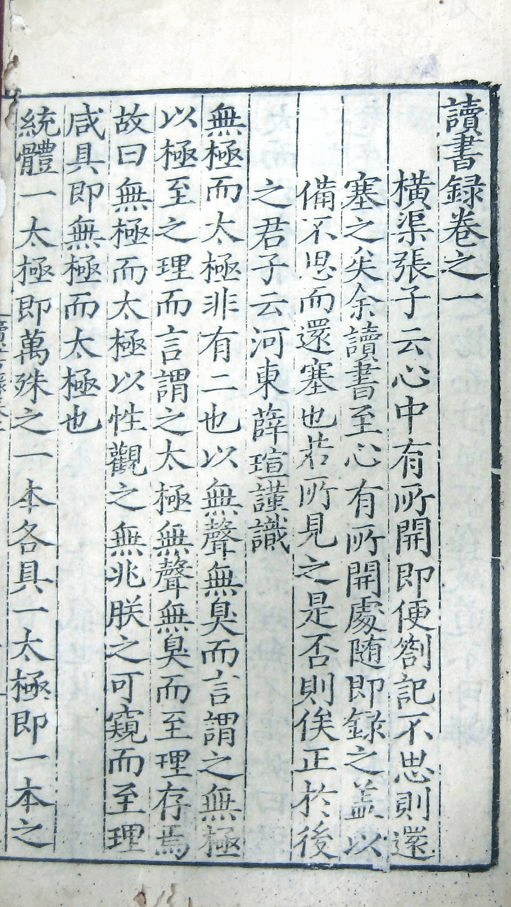 讀書録卷之一
横渠張子云心中有所開即便劄記不思則還
塞之矣余讀書至心有所開處随即録之盖以
備不思而還塞也若所見之是否則俟正於後
之君子云河東薛瑄謹識
無極而太極非有二也以無聲無臭而言謂之無極
以極至之理而言謂之太極無聲無臭而至理存焉
故曰無極而太極以性觀之無兆朕之可窺而至理
咸具即無極而太極也
統體一太極即萬殊之一本各具一太極即一本之